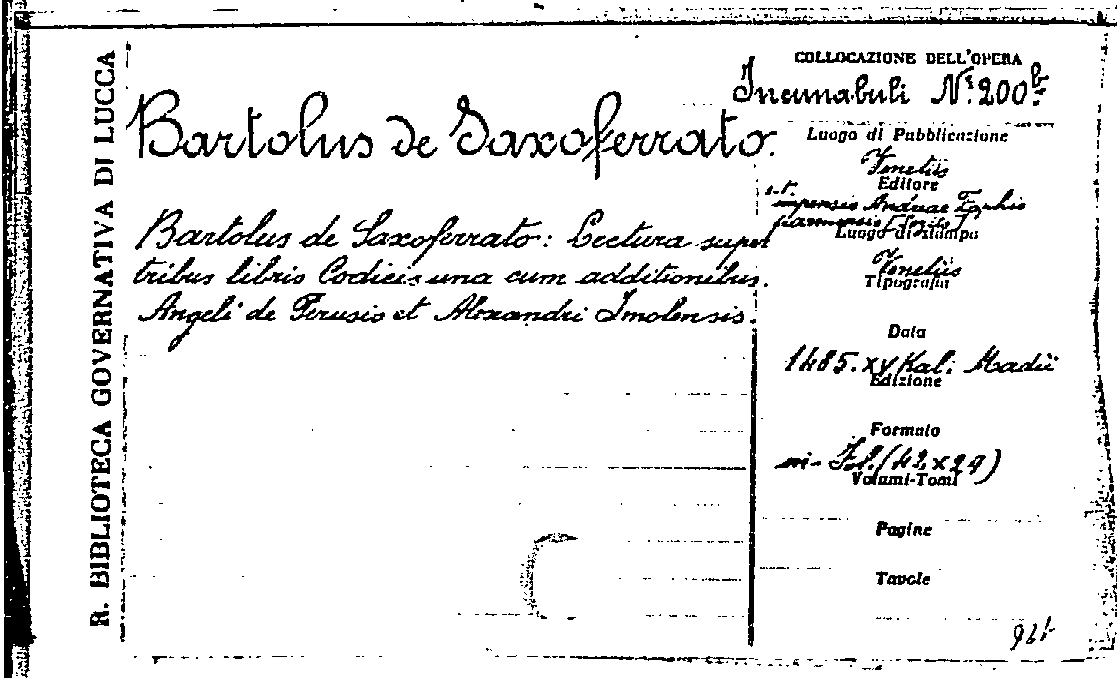 R. BIBLIOTECA GOVERNATIVA DI LUCCA
Bartolus de Saxoferrato.
Bartolus de Saxoferrato: Lectura super
tribus libris Codicis una cum additionibus
Angeli de Perusio et Alexandri Imolensis.
COLLOCAZIONE DELL'OPERA
Incunabuli N.º 200b
Luogo di Pubblicazione
Venetiis
Editore
impensis Andreae
parmensis
Luogo di Stampa
Venetiis
Tipografia
Data
1485. XV Kal. Madii
Edizione
Formato
in-Fol. (42 x 29)
Volumi-Tomi
Pagine
Tavole